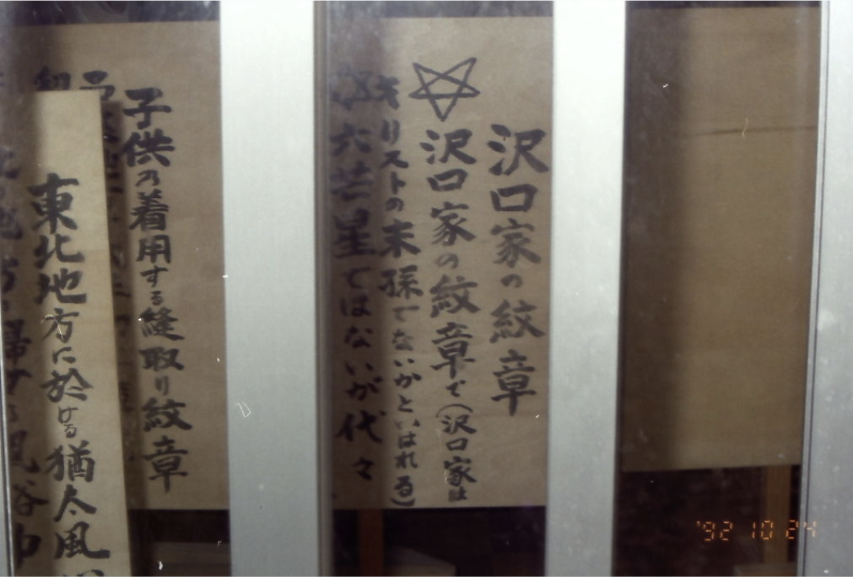 沢口家の紋章
沢口家の紋章で(沢口家は
キリストの末孫でないかといはれる)
六芒星ではないが代々
子供の着用する縫取り紋章
東北地方に於ける猶太風
'92 10 24